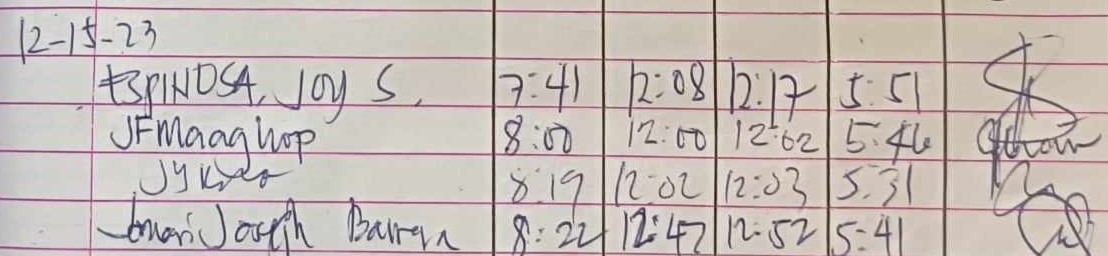 12-15-23
ESPINOSA, JOY S. 7:41 12:08 12:17 5:51
JFMaaghop 8:00 12:00 12:02 5:46
8:19 12:02 12:03 5:31
Joseph 8:22 12:47 12:52 5:41